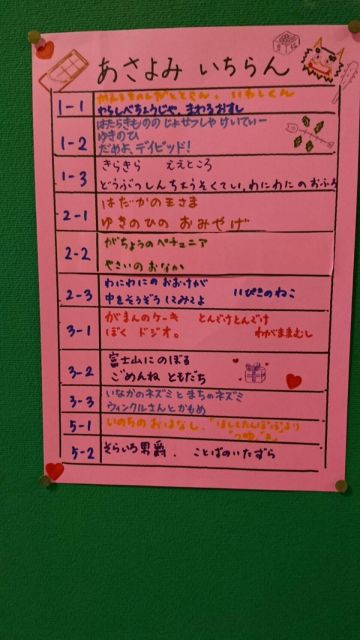 あさよみ いちらん
1-1 いわしくん
わらしべちょうじゃ、まわるおすし
1-2 はたらきもののじょせつしゃ けいてぃー
ゆきのひ
だめよ、デイビッド!
1-3 きらきら ええところ
どうぶつしんちょうそくてい、わにわにのおふろ
2-1 はだかの王さま
ゆきのひの おみやげ
2-2 がちょうのペチュニア
やさいのおなか
2-3 わにわにのおおけが 11ぴきのねこ
中をそうぞうしてみてよ
3-1 がまんのケーキ とんでけとんでけ
ぼく ドジオ。 わがままむし
3-2 富士山にのぼる
ごめんね ともだち
3-3 いなかのネズミとまちのネズミ
ウィンクルさんとかもめ
5-1 いのちのおはなし、
5-2 そらいろ男爵、 ことばのいたずら